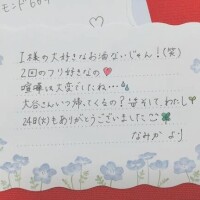 I様の大好きなお酒ないじゃん!(笑)
2回のフリ好きなの
喧嘩は大変でしたね…
大谷さんいつ帰ってくるの?そして、わたし
24日(火)もありがとうございました
なみか より